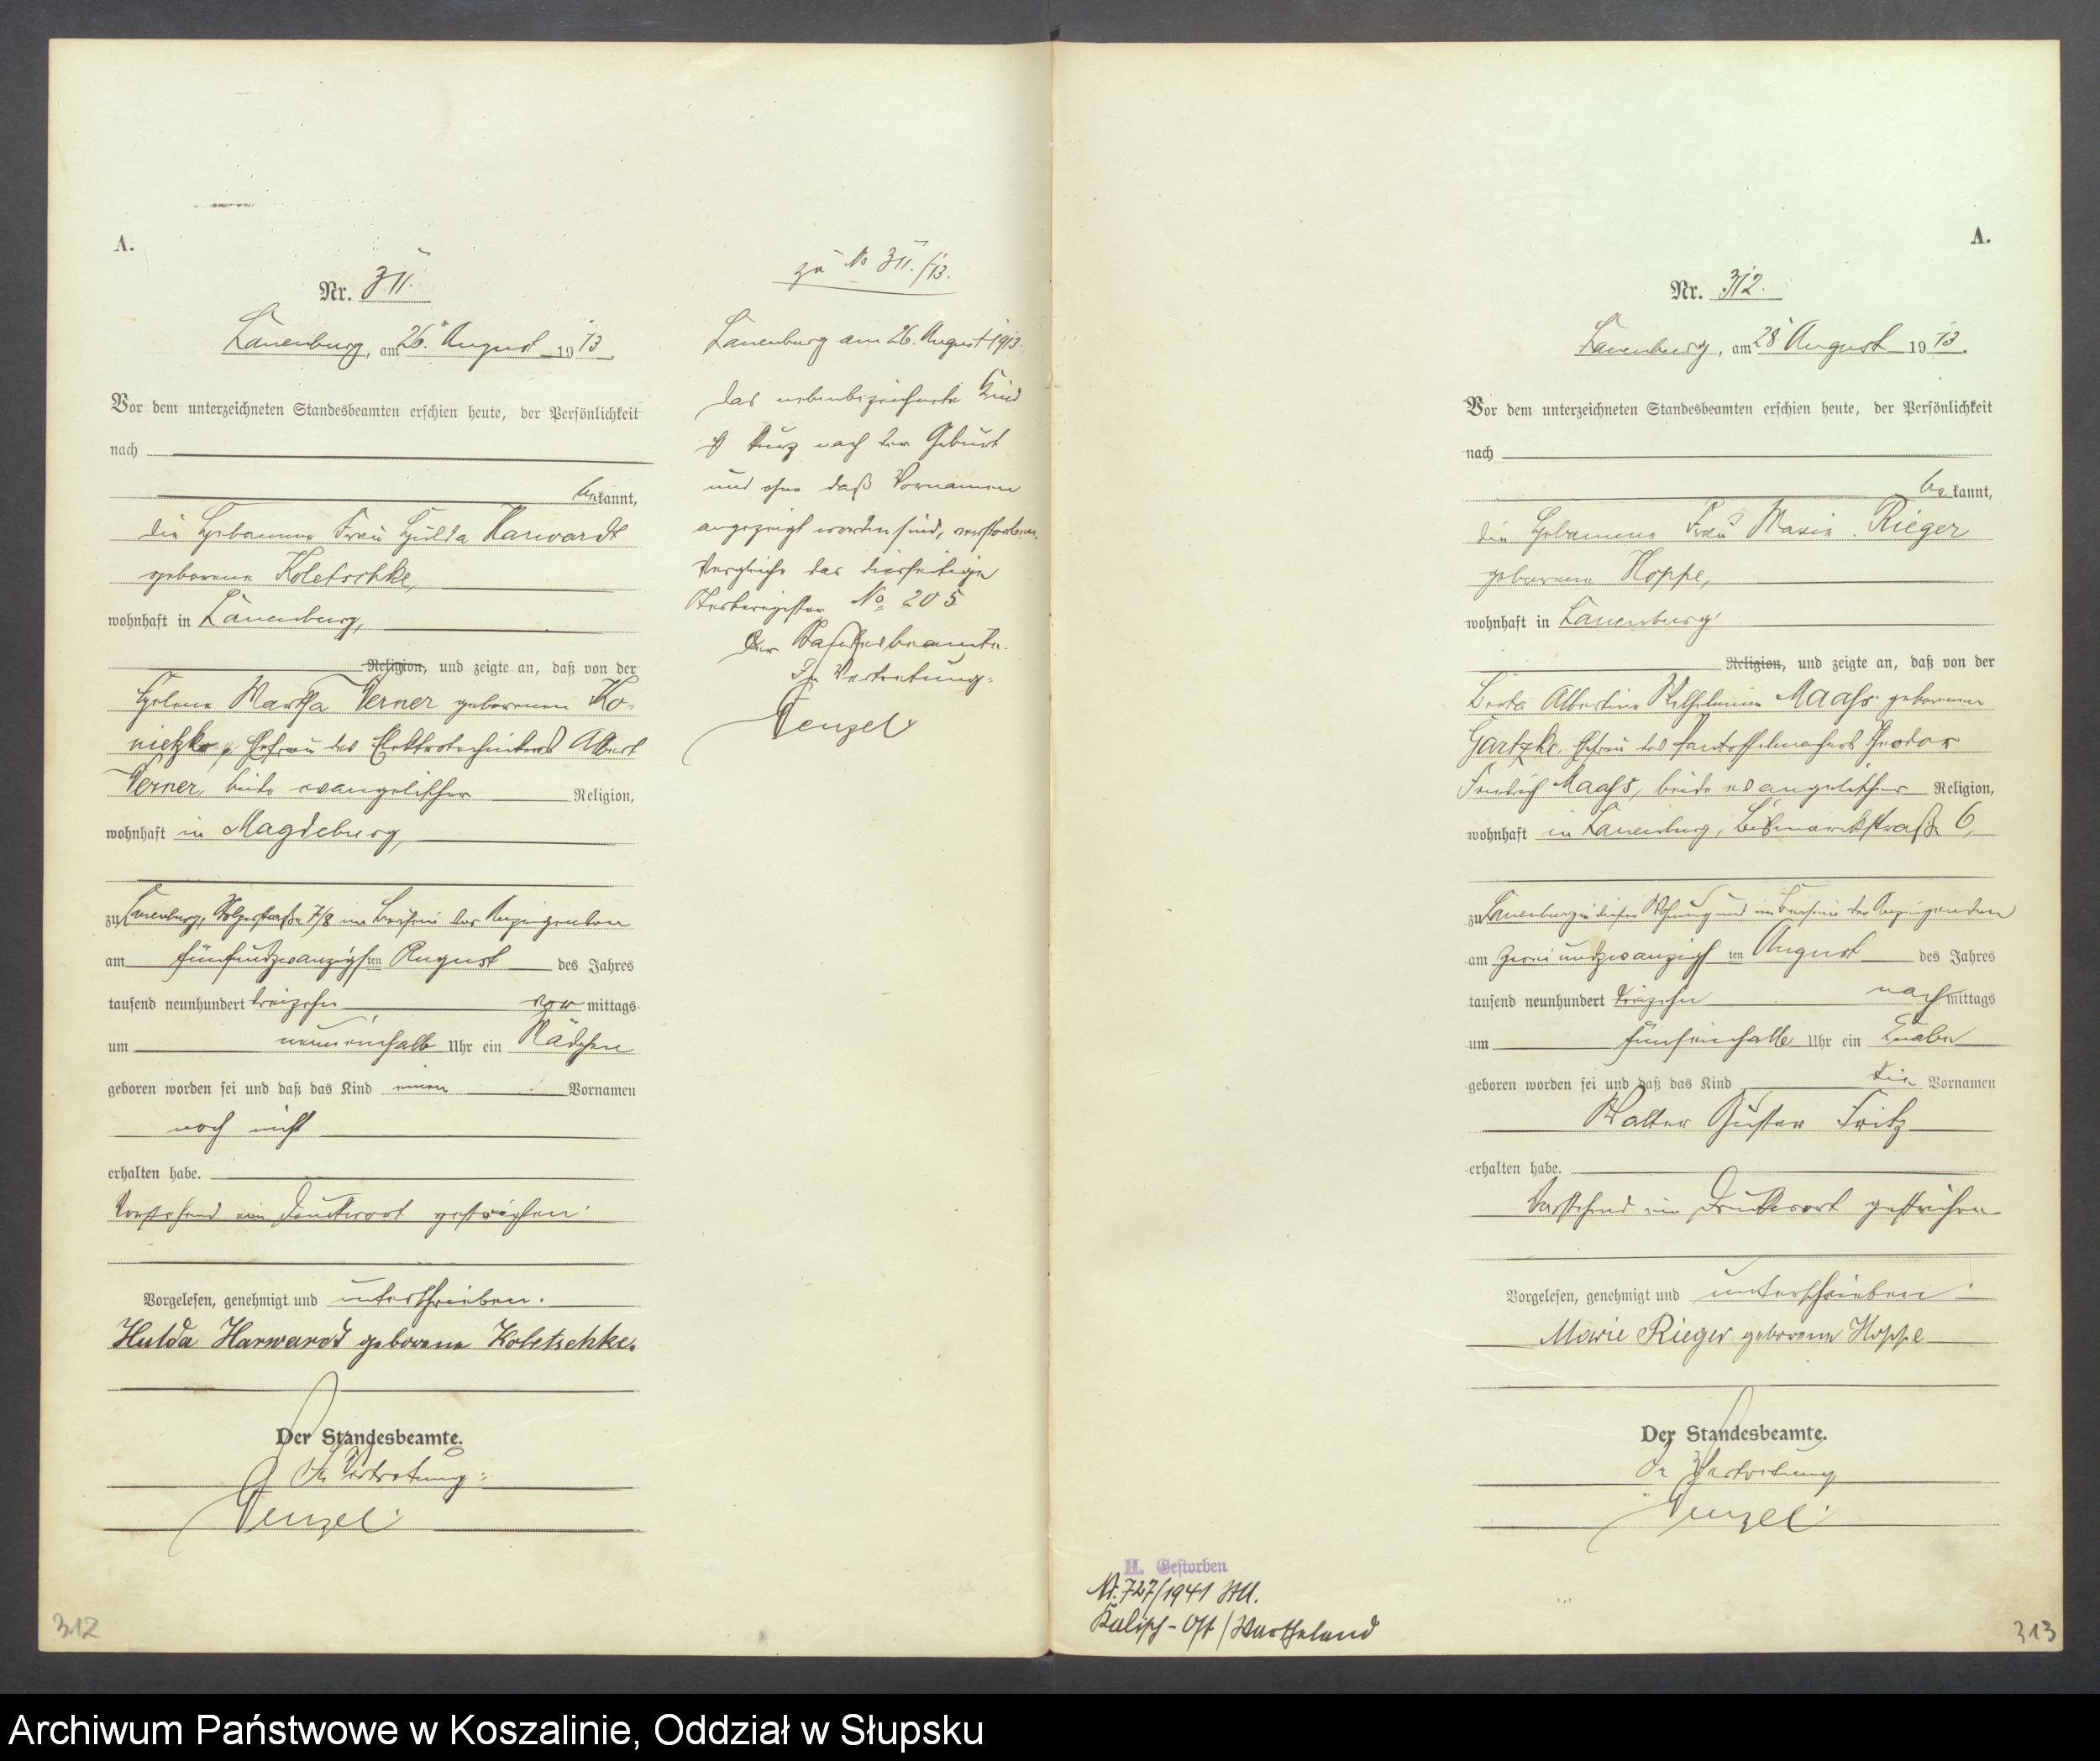 A.
Nr. 311.
Lauenburg, am 26. August 1913.
Vor dem unterzeichneten Standesbeamten erschien heute, der Persönlichkeit
nach
bekannt,
die Hebamme Frau Hulda Harwardt
geborene Koletschke,
wohnhaft in Lauenburg,
Religion, und zeigte an, daß von der
Helene Martha Werner geborenen Ko-
nietzko, Ehefrau des Elektrotechnikers Albert
Werner, beide evangelischer Religion,
wohnhaft in Magdeburg,
zu Lauenburg, Stolperstraße 7/8 im Beisein der Anzeigenden
am fünfundzwanzigsten August des Jahres
tausend neunhundert dreizehn vormittags
um neuneinhalb Uhr ein Mädchen
geboren worden sei und daß das Kind einen Vornamen
noch nicht
erhalten habe.
Vorstehend ein Druckwort gestrichen.
Vorgelesen, genehmigt und unterschrieben.
Hulda Harwardt geborene Koletschke.
Der Standesbeamte.
In Vertretung:
Wenzel
312
zu No 311./13.
Lauenburg am 26. August 1913.
Das nebenbezeichnete Kind
ist kurz nach der Geburt
und ohne daß Vornamen
angezeigt worden sind, verstorben.
Vergleiche das diesseitige
Sterberegister No 205
Der Standesbeamte.
In Vertretung:
Wenzel
A.
Nr. 312.
Lauenburg, am 28 August 1913.
Vor dem unterzeichneten Standesbeamten erschien heute, der Persönlichkeit
nach
bekannt,
die Hebamme Frau Marie Rieger
geborene Hoppe,
wohnhaft in Lauenburg
Religion, und zeigte an, daß von der
Berta Albertine Wilhelmine Maaß geborenen
Gartzke, Ehefrau des Pantoffelmachers Theodor
Friedrich Maaß, beide evangelischer Religion,
wohnhaft in Lauenburg, Bismarckstraße 6,
zu Lauenburg in dieser Wohnung und im Beisein der Anzeigenden
am zweiundzwanzigsten August des Jahres
tausend neunhundert dreizehn nachmittags
um fünfeinhalb Uhr ein Knabe
geboren worden sei und daß das Kind die Vornamen
Walter Gustav Fritz
erhalten habe.
Vorstehend ein Druckwort gestrichen
Vorgelesen, genehmigt und unterschrieben
Marie Rieger geborene Hoppe
Der Standesbeamte.
In Vertretung
Wenzel
H. Gestorben
Nr. 727/1941 StA.
Kalisch-Ost/Wartheland
313
Archiwum Państwowe w Koszalinie, Oddział w Słupsku